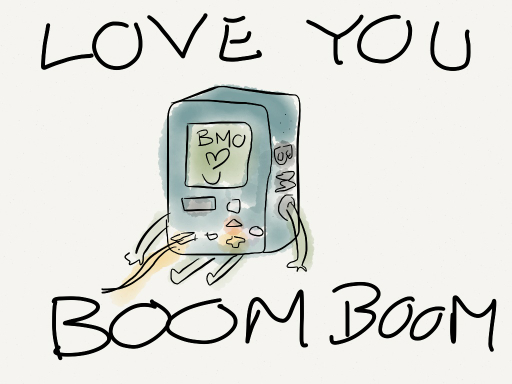 LOVE YOU
BMO
♡
U
BMO
BOOM BOOM